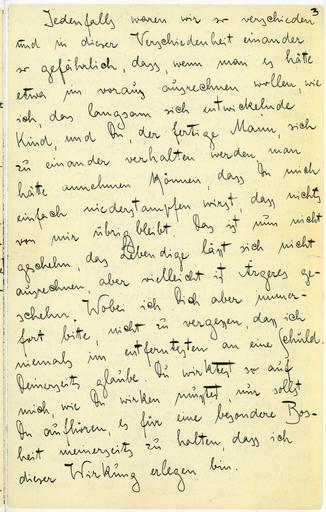 3
Jedenfalls waren wir so verschieden
und in dieser Verschiedenheit einander
so gefährlich, dass, wenn man es hätte
etwa im voraus ausrechnen wollen, wie
ich, das langsam sich entwickelnde
Kind, und Du, der fertige Mann, sich
zu einander verhalten werden, man
hätte annehmen können, dass Du mich
einfach niederstampfen wirst, dass nichts
von mir übrig bleibt. Das ist nun nicht
geschehn, das Lebendige lässt sich nicht
ausrechnen, aber vielleicht ist Ärgeres ge-
schehn. Wobei ich Dich aber immer-
fort bitte, nicht zu vergessen, dass ich
niemals im entferntesten an eine Schuld
Deinerseits glaube. Du wirktest so auf
mich, wie Du wirken musstest, nur sollst
Du aufhören, es für eine besondere Bos-
heit meinerseits zu halten, dass ich
dieser Wirkung erlegen bin.